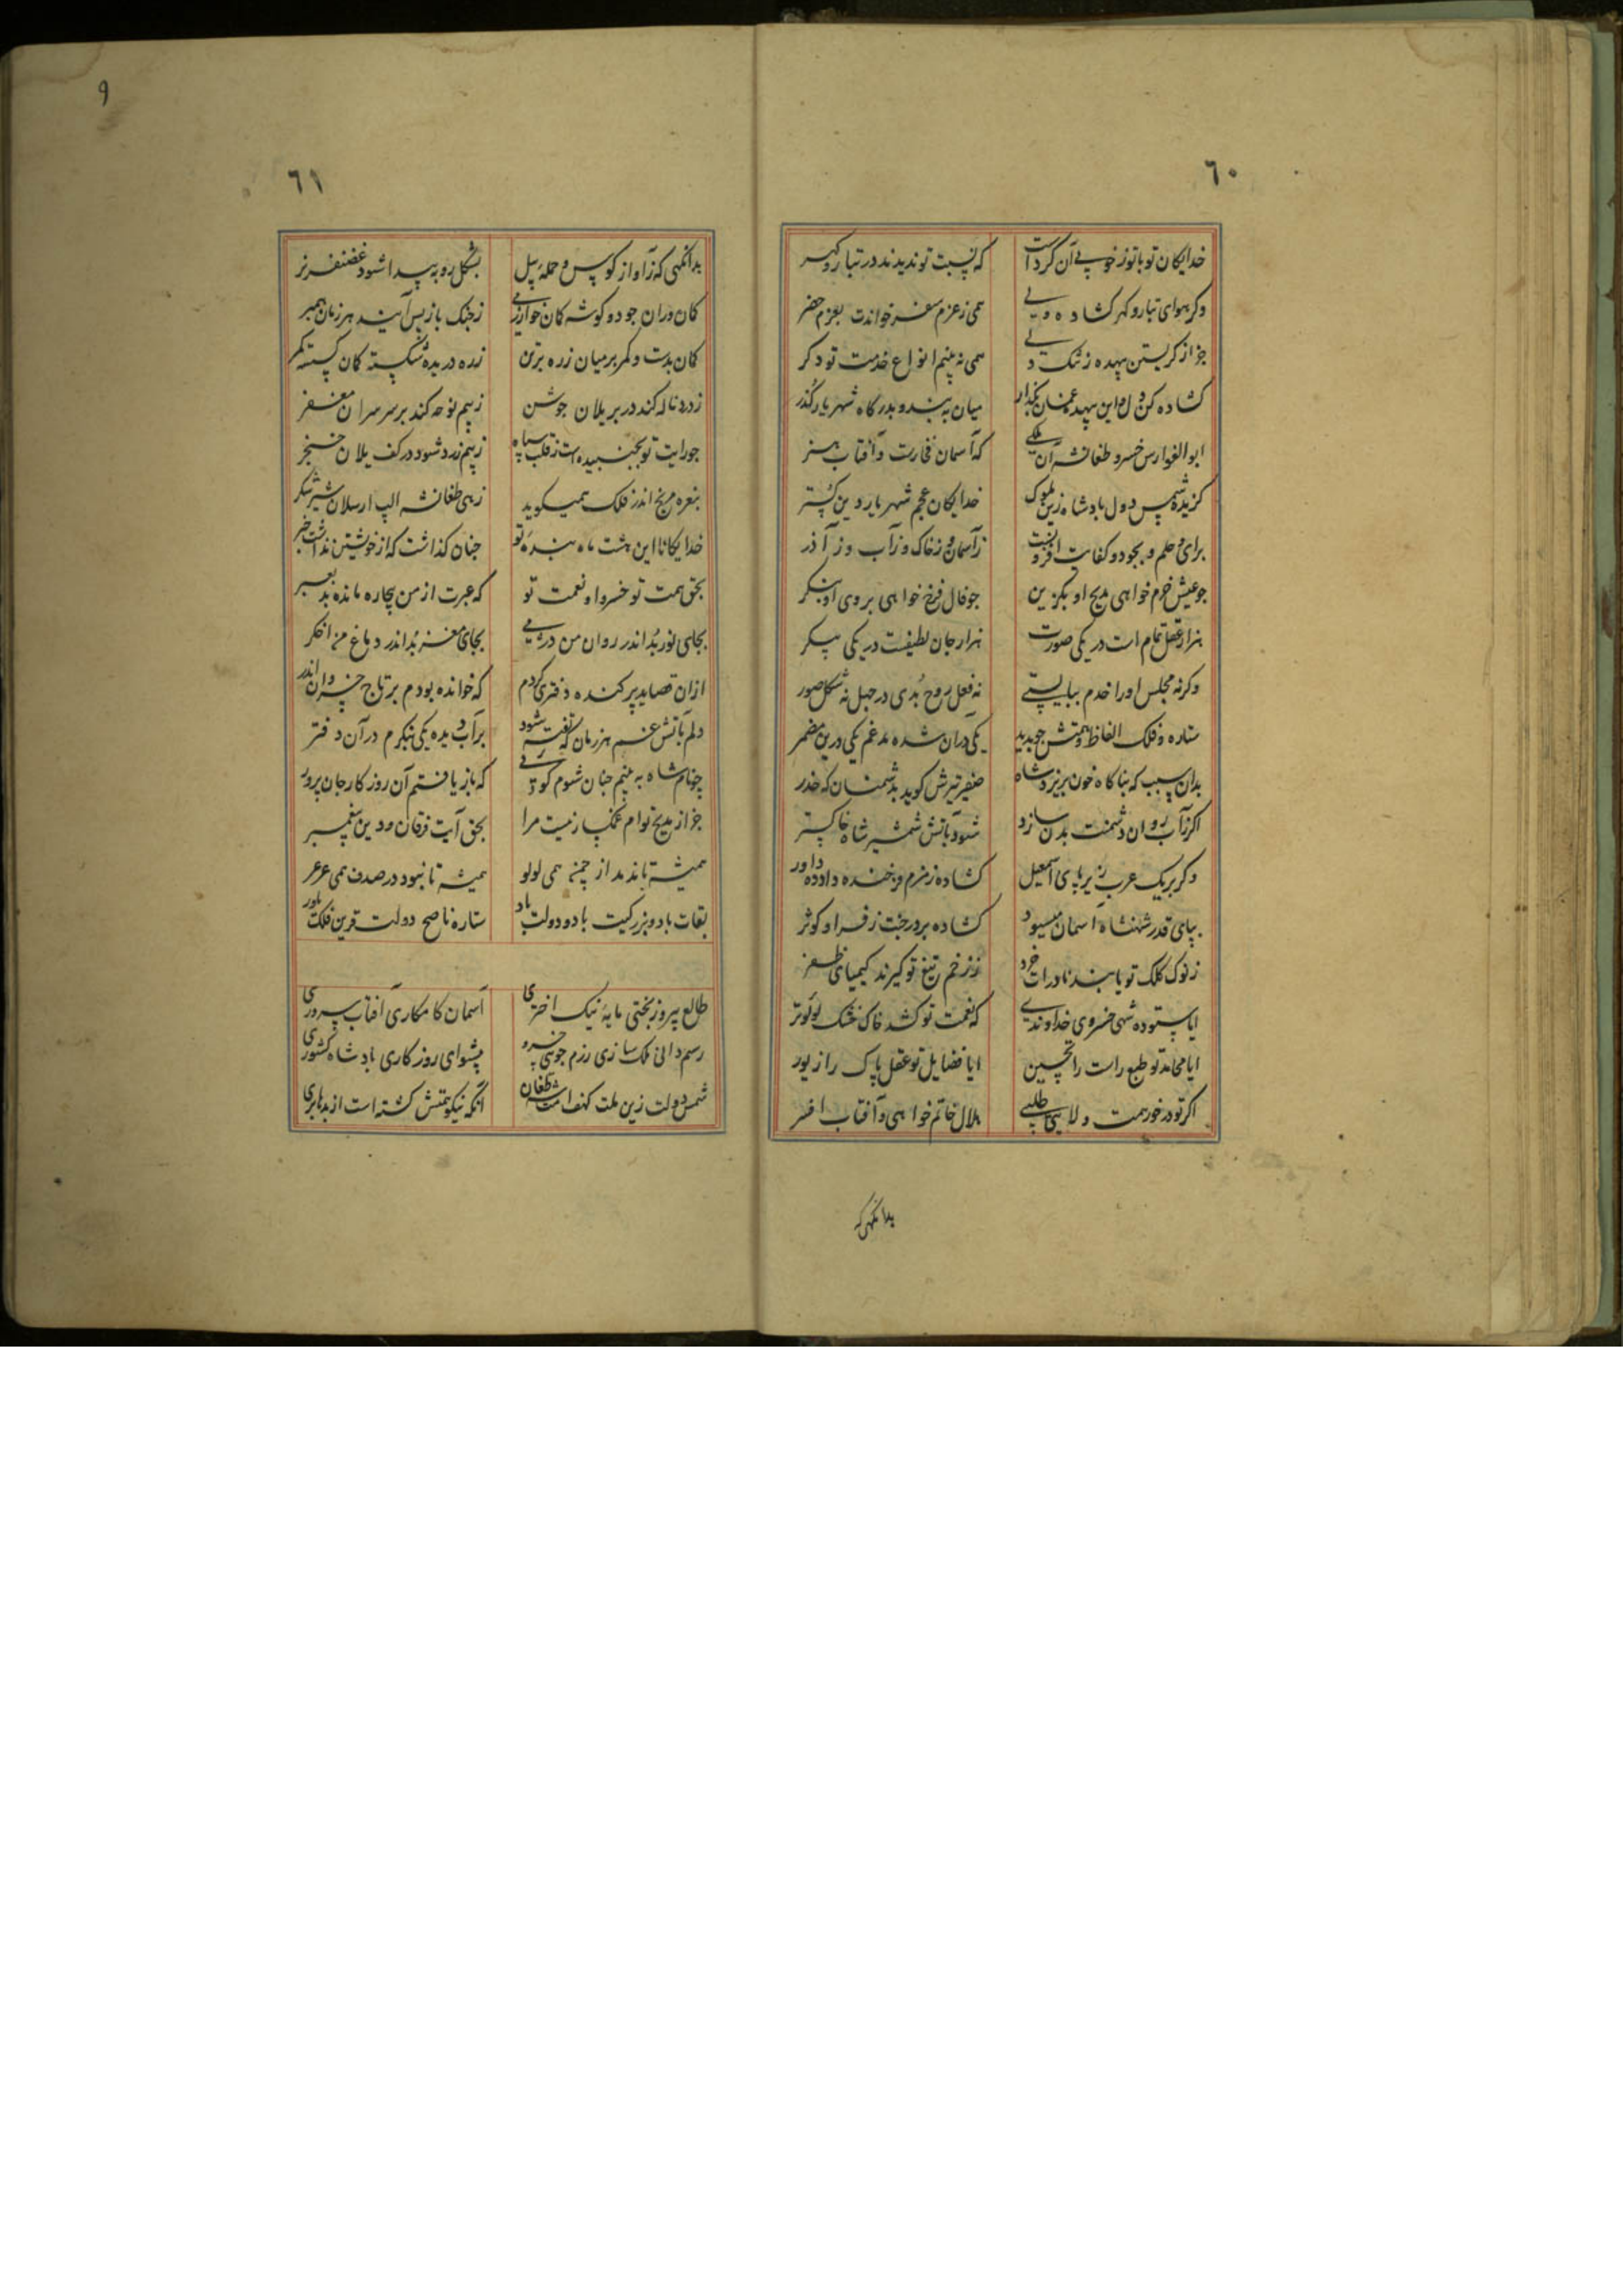 ٦٠
خدایکان تو با تو ز خوبی آن کردست که نسبت تو ندیدند در تبار و کهر
وکر هوای تبار و کهر کشاده همی ز عزم سفر خواندت بعزم حضر
جز از کریستن بیهده ز تنک دلی همی نه بینم انواع خدمت تو دکر
کشاده کن دل و این بیهده عنان بکذار میان به بند و بدرکاه شهریار کذر
ابو الفوارس خسرو طغانشه آن ملکی که آسمان فخارت و آفتاب هنر
کزیده شمس دول پادشاه زین ملوک خدایکان عجم شهریار دین کستر
برای و حلم و بجود و کفایت افزونست ز آسمان و ز خاک و ز آب و ز آذر
جو عیش خرم خواهی مدیح او بکزین جو فال فرخ خواهی بروی او بنکر
هزار عقل تمام است در یکی صورت هزار جان لطیفست در یکی پیکر
وکر نه مجلس او را خدم ببایستی نه فعل روح بدی در جهل نه شکل صور
ستاره و فلک الفاظ و همتش جویند یکی دران شده مدغم یکی درین مضمر
بدان سبب که بناکاه خون بریزد شاه صفیر تیرش کوید بدشمنان که حذر
اکر ز آب روان دشمنت بدن سازد شود بآتش شمشیر شاه خاکستر
وکر بریک عرب زیر پای اسمعیل کشاده زمزم فرخنده داده داور
بپای قدر شهنشاه آسمان میسود کشاده بر در جنت ز فر او کوثر
ز نوک کلک تو یابند نادرات خرد ز زخم تیغ تو کیرند کیمیای ظفر
ایا ستوده شهی خسروی خداوندی که نعمت تو کشد خاک خشک لولو تر
ایا محامد تو طبع راست را تحسین ایا فضایل تو عقل پاک را زیور
اکر تو در خور همت ولایتی طلبی هلال خاتم خواهی و آفتاب افسر
بدانکهی که
٦١
بدانکهی که ز آواز کوس و حمله پیل بشکل روبه پیدا شود غضنفر نر
کمان بدست و کمر بر میان زره بر تن زره دریده شکسته کمان کسسته کمر
ز درد ناله کند در بر یلان جوشن ز بیم نوحه کند بر سر سران مغفر
جو رایت تو بجنبیده است ز قلب سپاه ز بیم زرد شود در کف یلان خنجر
بنعره مریخ اندر فلک همیکوید زهی طغانشه الپ ارسلان شیر شکر
خدایکانا این هشت ماه بنده تو جنان کذاشت که از خویشتن نداشت خبر
بحق همت تو خسروا و نعمت تو که عبرت از من بیچاره مانده بد
بجای نور بد اندر روان من دردی بجای مغز بد اندر دماغ من اخکر
ازان قصاید پرکنده دفتری کردم که خوانده بودم بر تاج خسروان اندر
دلم بآتش غم هر زمان که تفته شود بر آب دیده یکی بنکرم در آن دفتر
چو نام شاه به بینم جنان شوم کویی که بازیافتم آن روزکار جان پرور
جز از مدیح توام غمکسار نیست مرا بحق آیت فرقان و دین پیغمبر
همیشه تا ندمد از چمن همی لولو همیشه تا نبود در صدف همی عرعر
بقات باد و بزرکیت باد و دولت باد ستاره ناصح دولت قرین فلک یاور
طالع پیروز بختی مایه نیک اختری آسمان کامکاری آفتاب سروری
رسم دانی ملک سازی رزم جویی خسرو پیشوای روزکاری پادشاه کشوری
شمس دولت زین ملت کهف امت شه طغان آنکه نیکو همتش کشته است از بدها بری